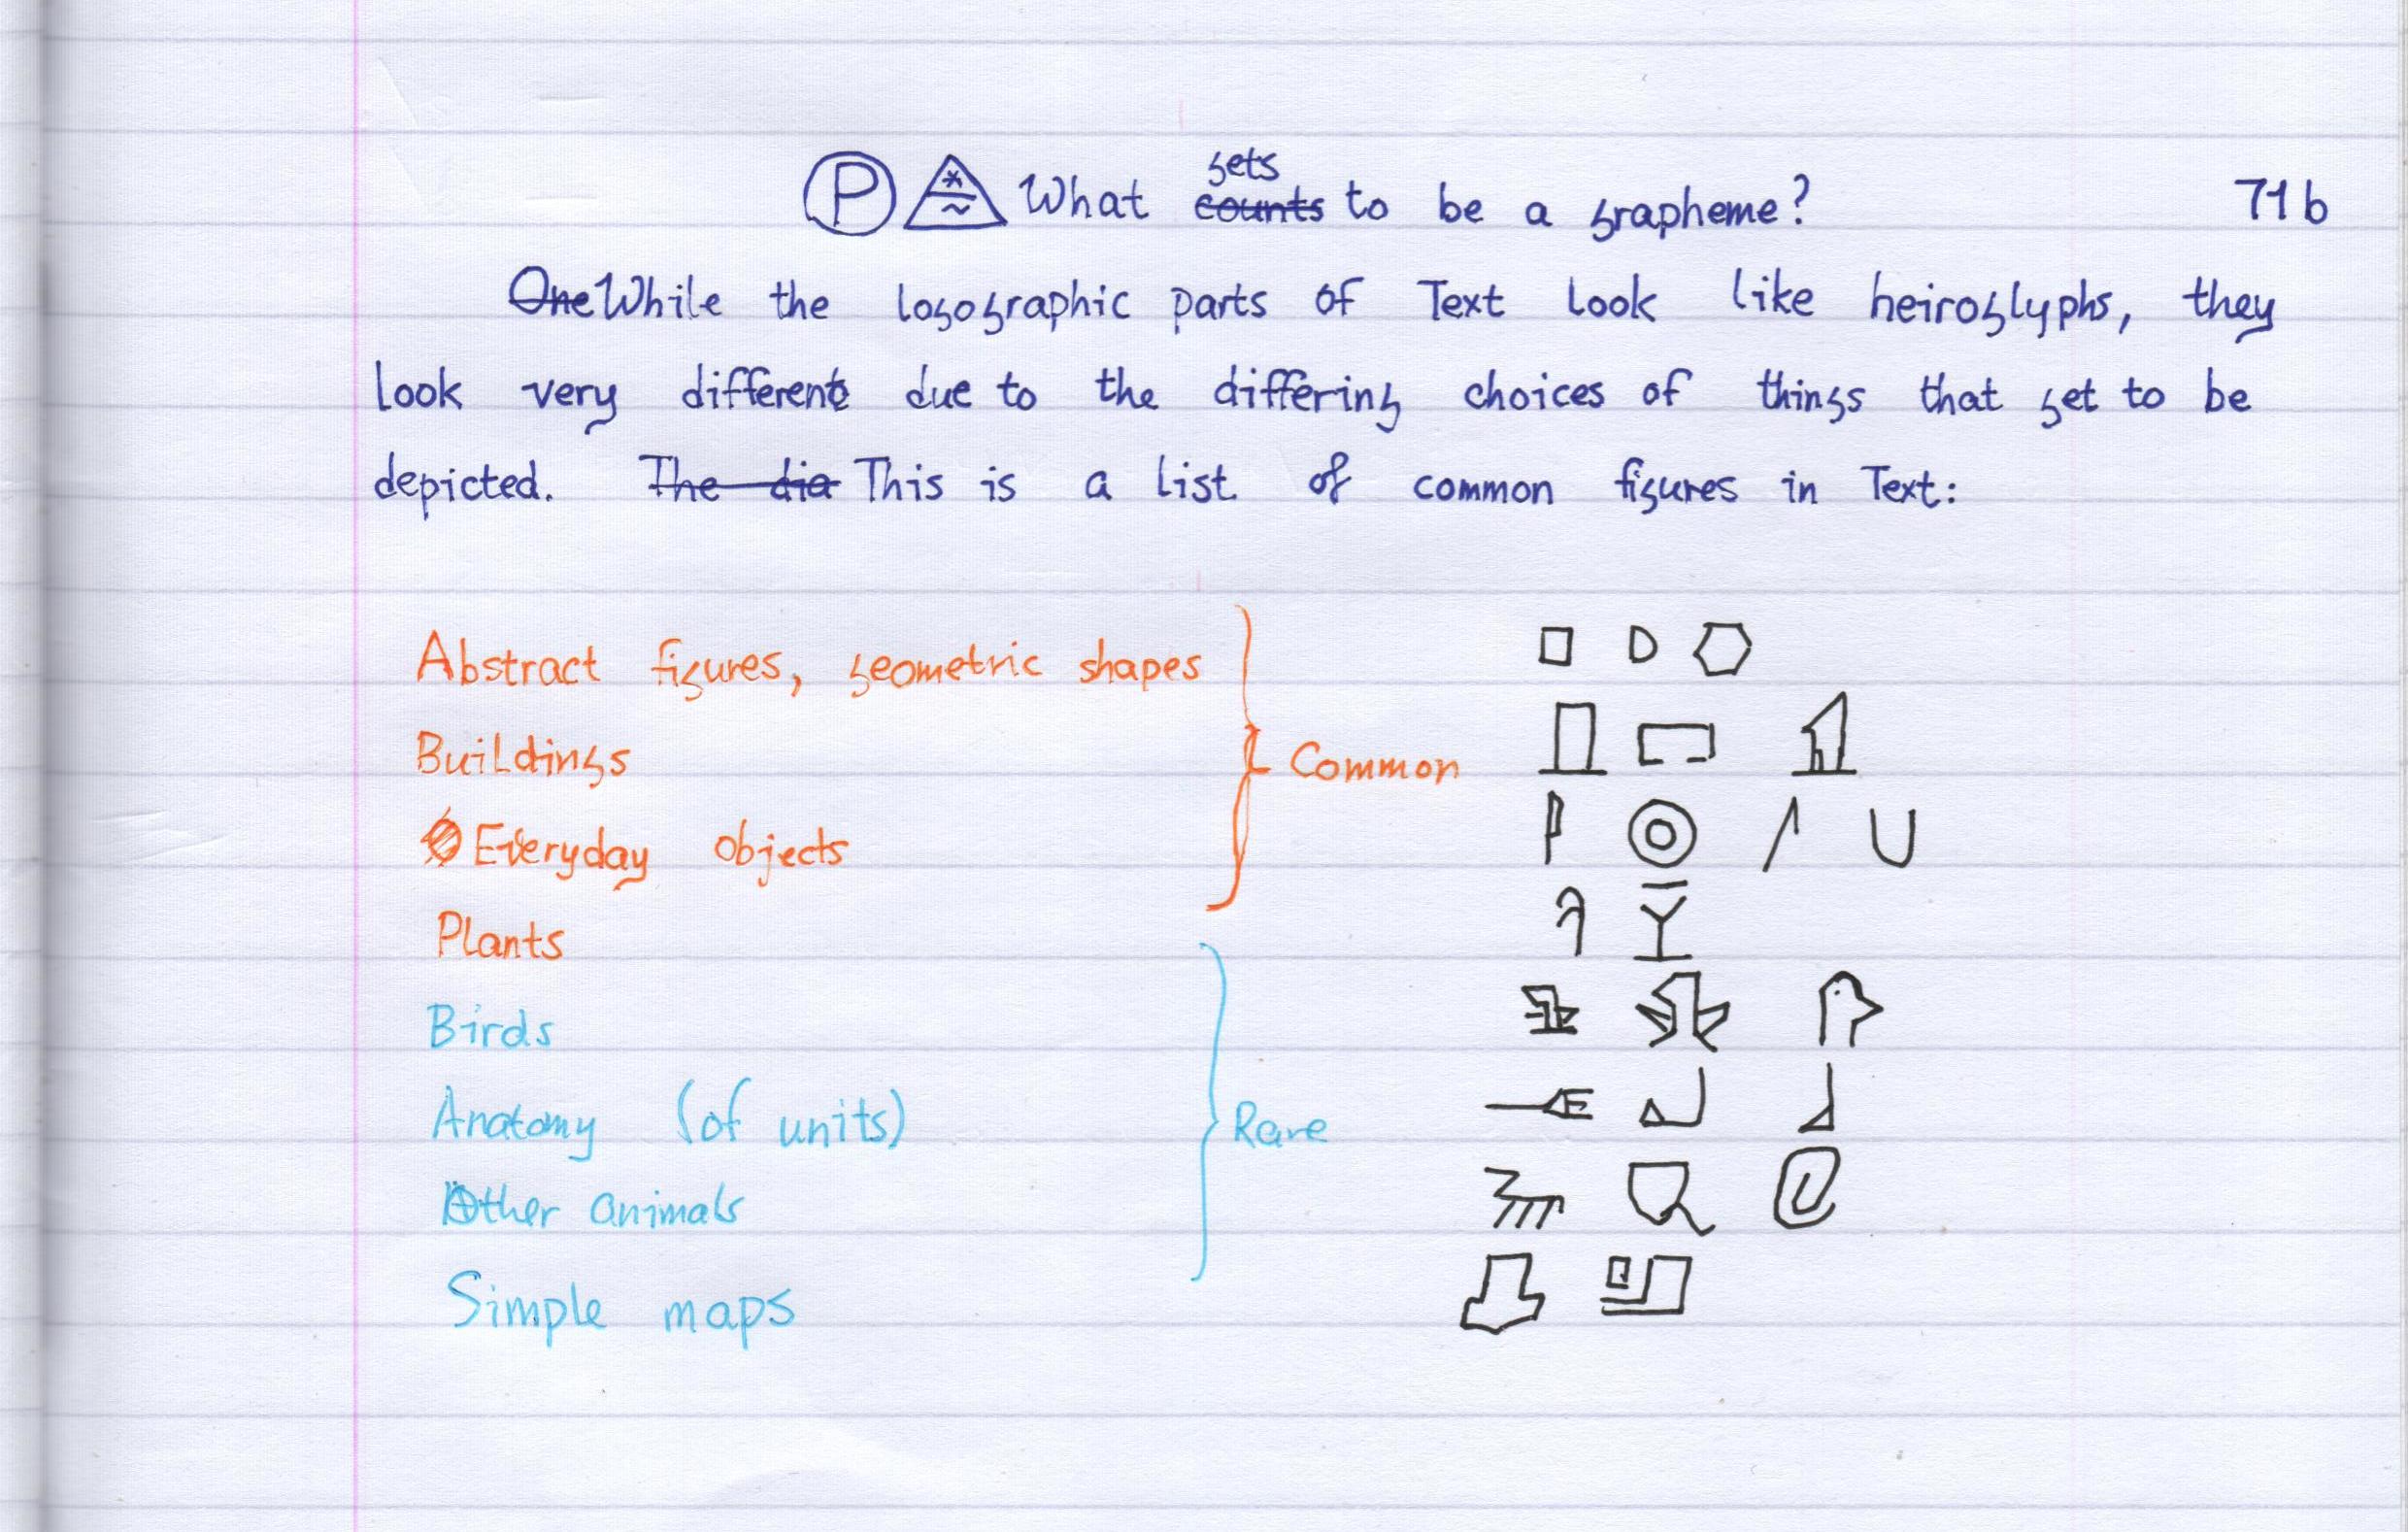 Ⓟ What gets to be a grapheme? 71b
While the logographic parts of Text look like heiroglyphs, they
look very different due to the differing choices of things that get to be
depicted. This is a list of common figures in Text:
Abstract figures, geometric shapes
Buildings
Common
Everyday objects
Plants
Birds
Anatomy (of units)
Rare
Other animals
Simple maps